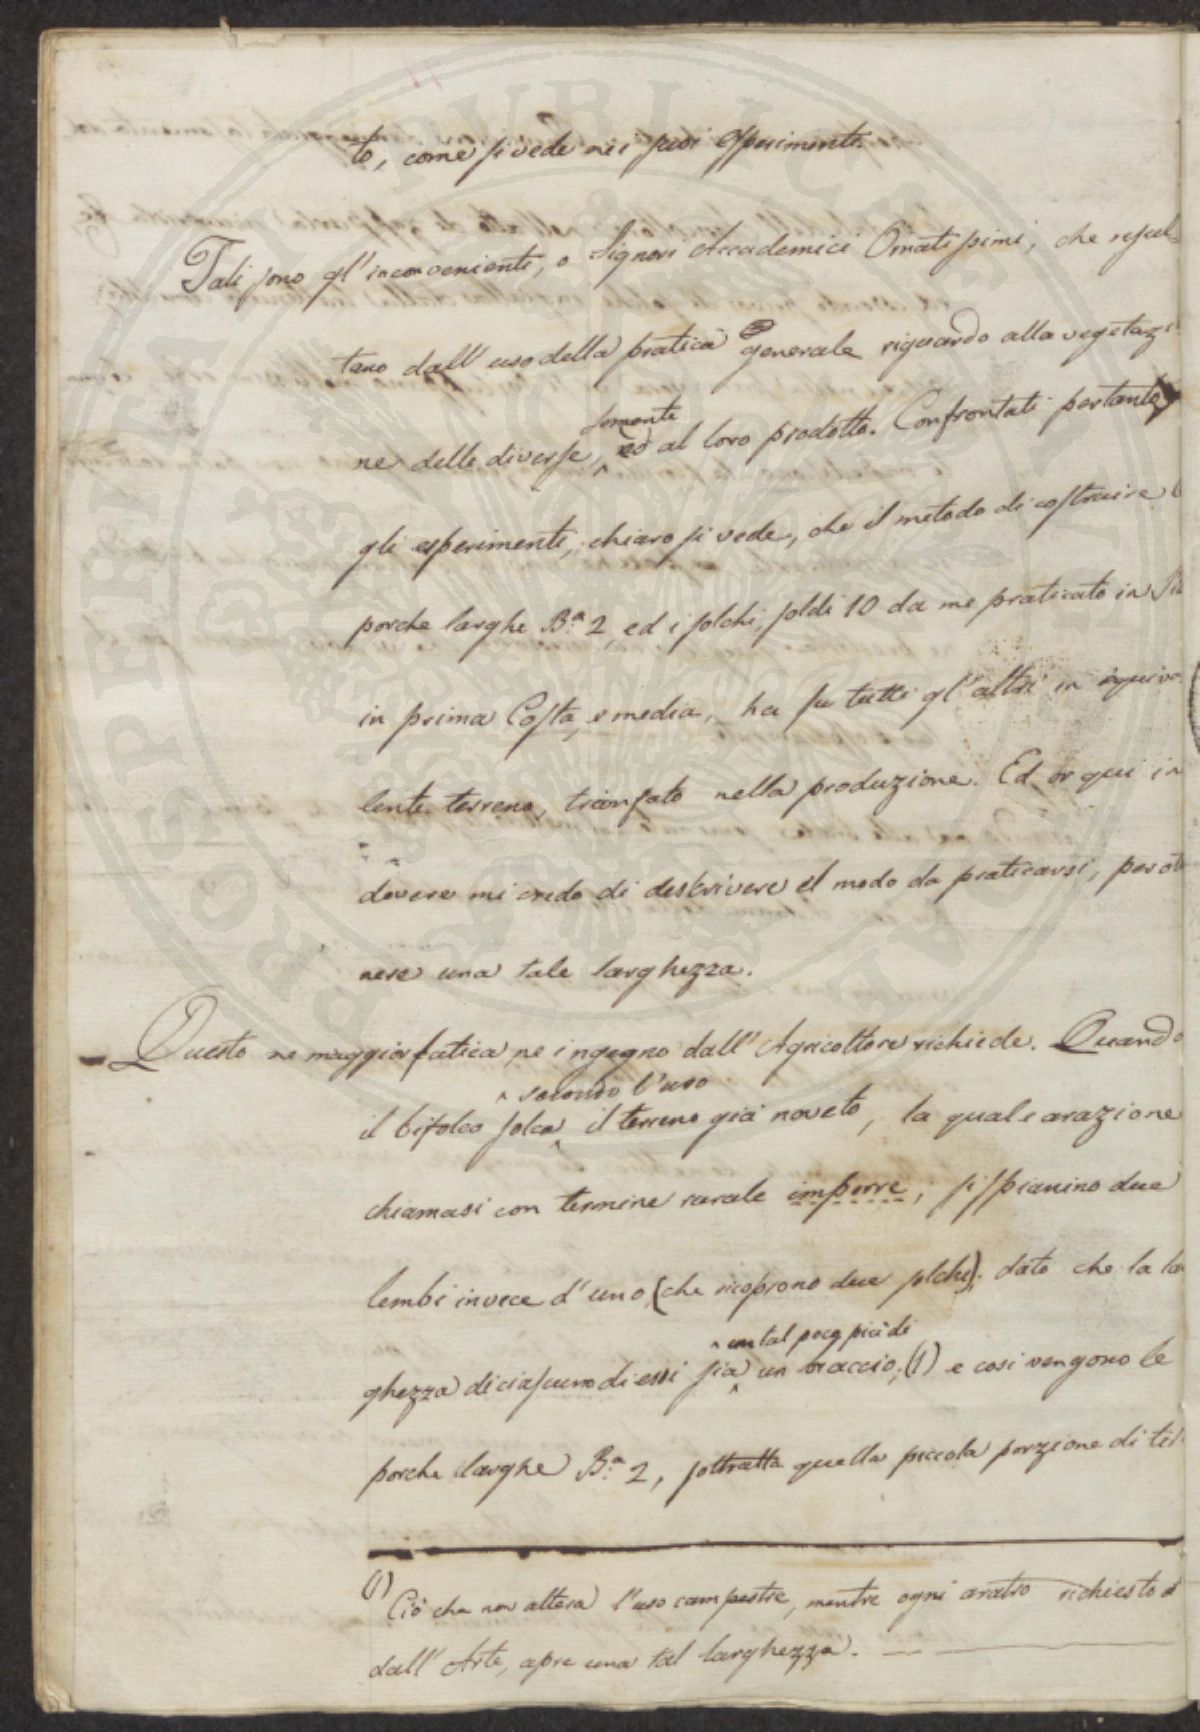 to, come si vede nei suoi esperimenti.
Tali sono gl'inconvenienti, o Signori Accademici Ornatissimi, che resul-
tano dall'uso della pratica generale riguardo alla vegetazi
ne delle diverse, ^ semente ed al loro prodotto. Confrontati pertanto
gli esperimenti, chiaro si vede, che il metodo di costruire
porche larghe B.a 2, ed i solchi, soldi 10 da me praticato in
in prima Costa, e media, ha su tutti gl'altri in equiva
lente terreno, trionfato nella produzione. Ed or qui in
dovere mi credo di descrivere il modo da praticarsi, per ot
nere una tale larghezza.
Questo ne maggior fatica ne ingegno dall'Agricoltore richiede. Quando
il bifolco solca ^ secondo l'uso il terreno già noveto, la quale arazione
chiamasi con termine rurale imporre, si spianino due
lembi invece d'uno, (che ricoprono due solchi), dato che la la
ghezza di ciascuno di essi sia ^ un tal poco più di un braccio, (1) e così vengono le
porche larghe B.a 2, sottratta quella piccola porzione di ter
(1) Ciò che non altera l'uso campestre, mentre ogni aratro richiesto d
dall'Arte, apre una tal larghezza. — —
PROSPERITATI PUBLICAE